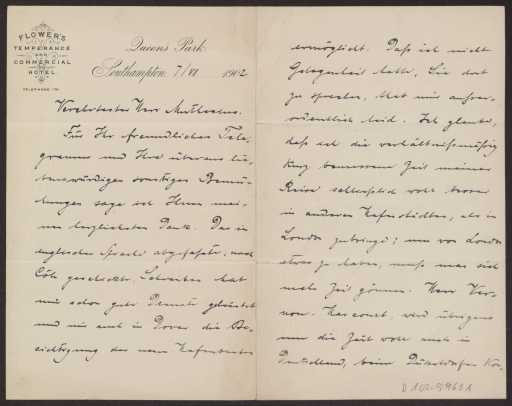 FLOWER'S
TEMPERANCE
AND
COMMERCIAL
HOTEL.
TELEPHONE
Queens Park
Southampton, 7/VI 1902
Verehrtester Herr Muthesius.
Für Ihr freundliches Tele-
gramm und Ihre überaus lie-
benswürdigen sonstigen Bemü-
hungen sage ich Ihnen mei-
nen herzlichsten Dank. Das in
englischer Sprache abgefasste, nach
Cöln geschickte Schreiben hat
mir schon gute Dienste geleistet
und mir auch in Dover die Be-
sichtigung der neuen Hafenbauten
ermöglicht. Dass ich nicht
Gelegenheit hatte, Sie dort
zu sprechen, that mir ausser-
ordentlich leid. Ich glaube,
dass ich die verhältnissmässig
kurz bemessene Zeit meiner
Reise selbst wohl besser
in anderen Hafenstädten, als in
London zubringe; um von London
etwas zu haben, muss man sich
mehr Zeit gönnen. Herr Ver-
non-Harcourt wird übrigens
um die Zeit wohl auch in
Deutschland, beim Düsseldorfer Kon-